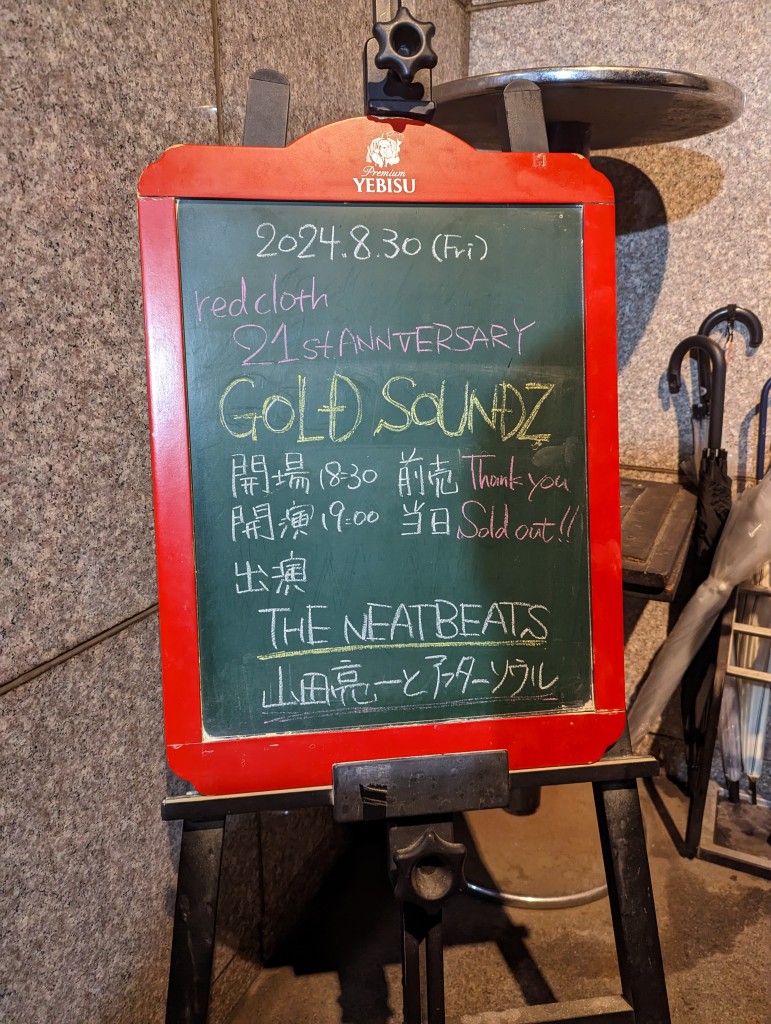 Premium
YEBISU
2024.8.30 (Fri)
red cloth
21st ANNIVERSARY
GOLD SOUNDZ
開場 18:30 前売 Thank you
開演 19:00 当日 Sold out!!
出演
THE NEATBEATS
山田亮一とアフターソウル